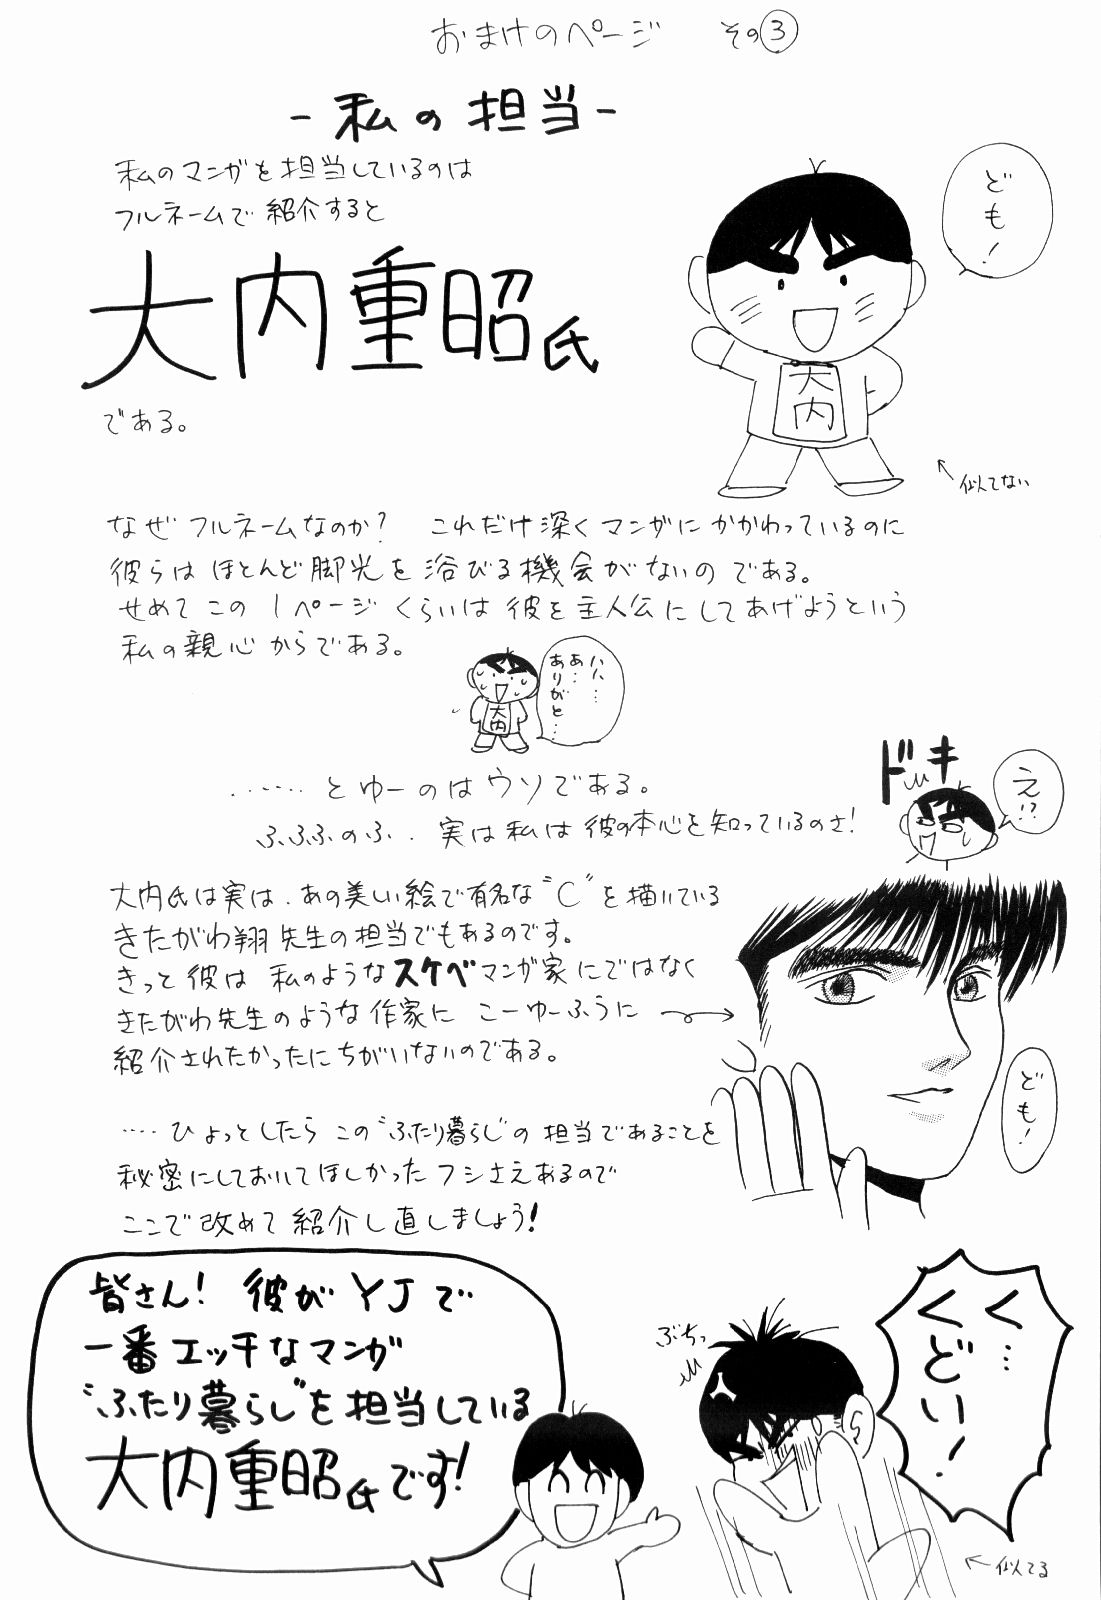 おまけのページ その③
-私の担当-
私のマンガを担当しているのは
フルネームで紹介すると
大内重昭氏
である。
ども!
大内
←似てない
なぜフルネームなのか? これだけ深くマンガにかかわっているのに
彼らはほとんど脚光を浴びる機会がないのである。
せめてこの1ページくらいは彼を主人公にしてあげようという
私の親心からである。
大内
ハハ…
あ…
ありがと…
……とゆーのはウソである。
ふふふのふ..実は私は彼の本心を知っているのさ!
ドキ
え!?
大内氏は実は、あの美しい絵で有名な“C”を描いている
きたがわ翔先生の担当でもあるのです。
きっと彼は私のようなスケベマンガ家にではなく
きたがわ先生のような作家にこーゆーふうに
紹介されたかったにちがいないのである。
ども!
‥‥ひょっとしたらこの“ふたり暮らし”の担当であることを
秘密にしておいてほしかったフシさえあるので
ここで改めて紹介し直しましょう!
皆さん!彼がYJで
一番エッチなマンガ
“ふたり暮らし”を担当している
大内重昭氏です!
ぶちっ
く…
くどい!
←似てる